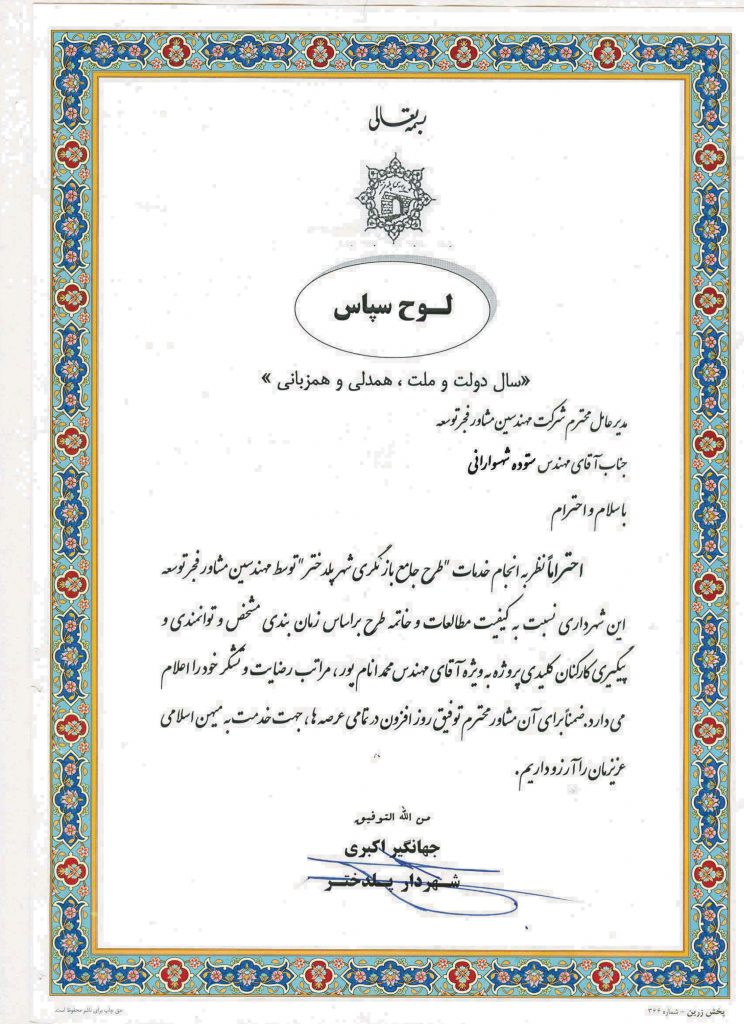 بسمه تعالی
لوح سپاس
«سال دولت و ملت ، همدلی و همزبانی »
مدیرعامل محترم شرکت مهندسین مشاور فجر توسعه
جناب آقای مهندس ستوده شهسوارانی
با سلام و احترام
احتراماً نظر به انجام خدمات "طرح جامع بازنگری شهر پلدختر" توسط مهندسین مشاور فجر توسعه
این شهرداری نسبت به کیفیت مطالعات و خاتمه طرح براساس زمان بندی مشخص و توانمندی و
پیگیری کارکنان کلیدی پروژه به ویژه آقای مهندس محمد انام پور ، مراتب رضایت و تشکر خود را اعلام
می دارد. ضمناً برای آن مشاور محترم توفیق روز افزون در تمامی عرصه ها ، جهت خدمت به میهن اسلامی
عزیزمان را آرزو داریم.
من الله التوفیق
جهانگیر اکبری
شهردار پلدختر
پخش زرین - شماره ۳۶۶
حق چاپ برای ناشر محفوظ است.